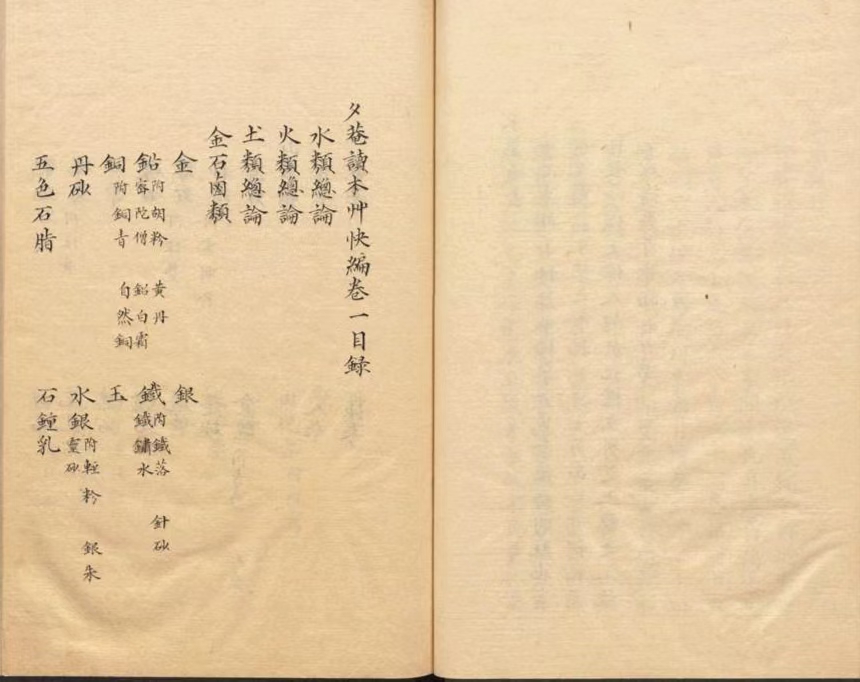 夕菴讀本艸快編卷一目録
水類總論
火類總論
土類總論
金石鹵類
金 銀
鉛 附胡粉 黃丹 密陀僧 鉛白霜 鐵 附鐵落 針砂 鐵鏽水
銅 附銅青 自然銅 玉
丹砂 水銀 附輕粉 銀朱 靈砂
五色石脂 石鐘乳